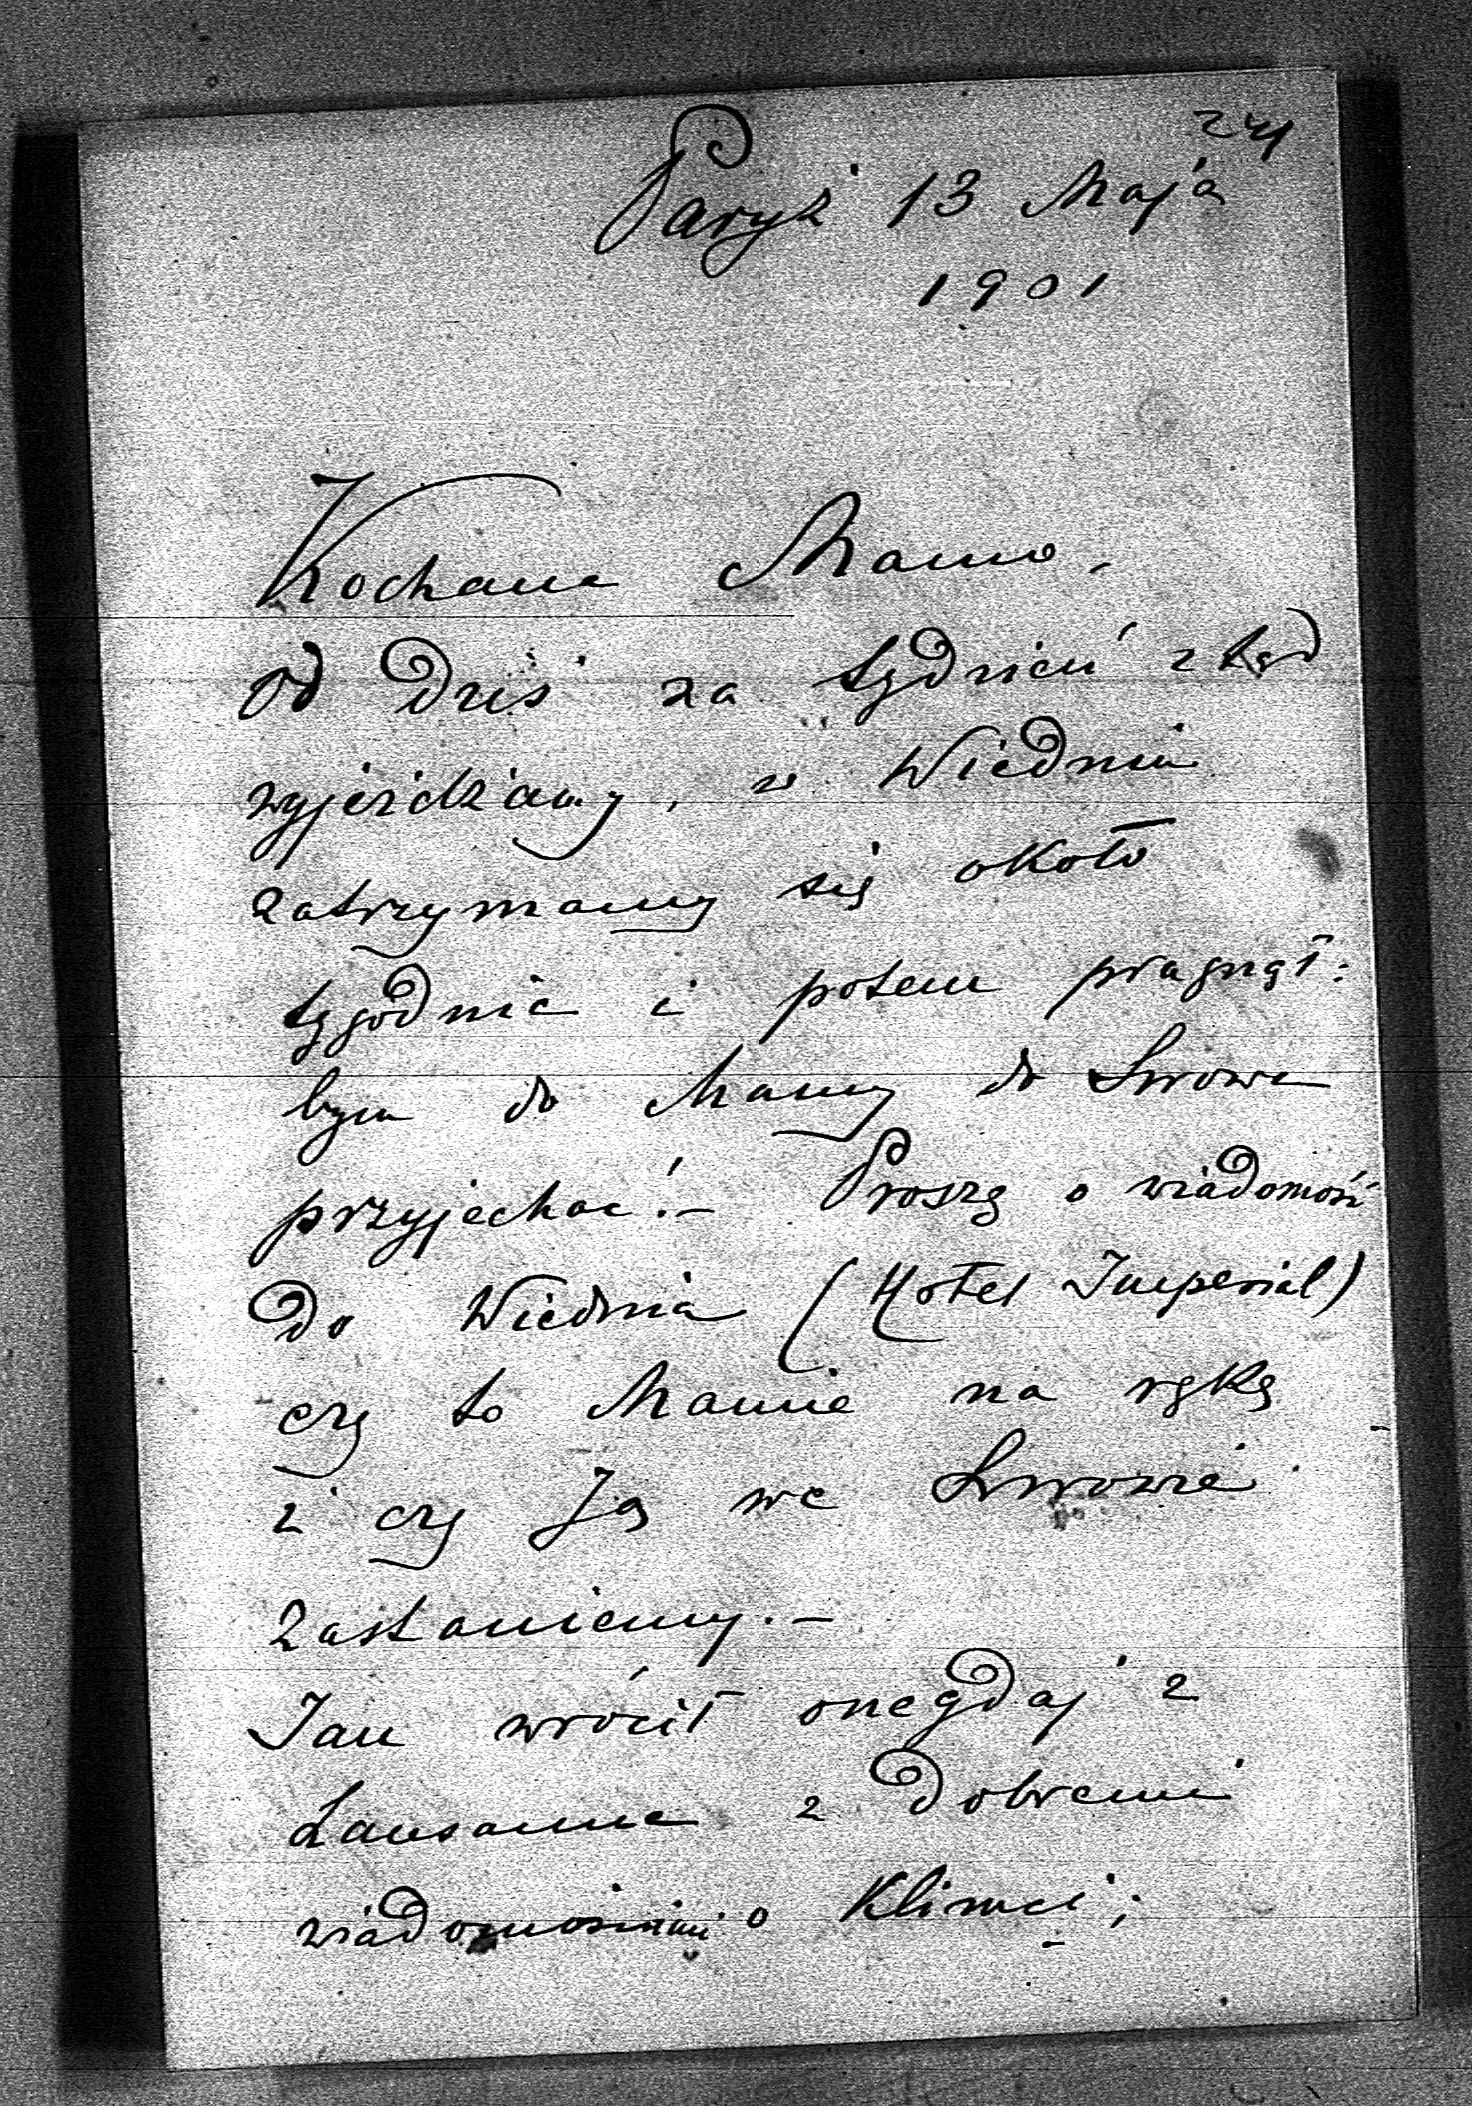 24
Paryż 13 Maja
1901
Kochana Mamo.
Od dziś za tydzień ztąd
wyjeżdżamy, w Wiedniu
zatrzymamy się około
tygodnia i potem pragnął:
bym do Mamy do Lwowa
przyjechać. – Proszę o wiadomość
do Wiednia (Hotel Imperial)
czy to Mamie na rękę
i czy Ją we Lwowie
zastaniemy. –
Jan wrócił onegdaj z
Lausanne z dobremi
wiadomościami o Klimci;